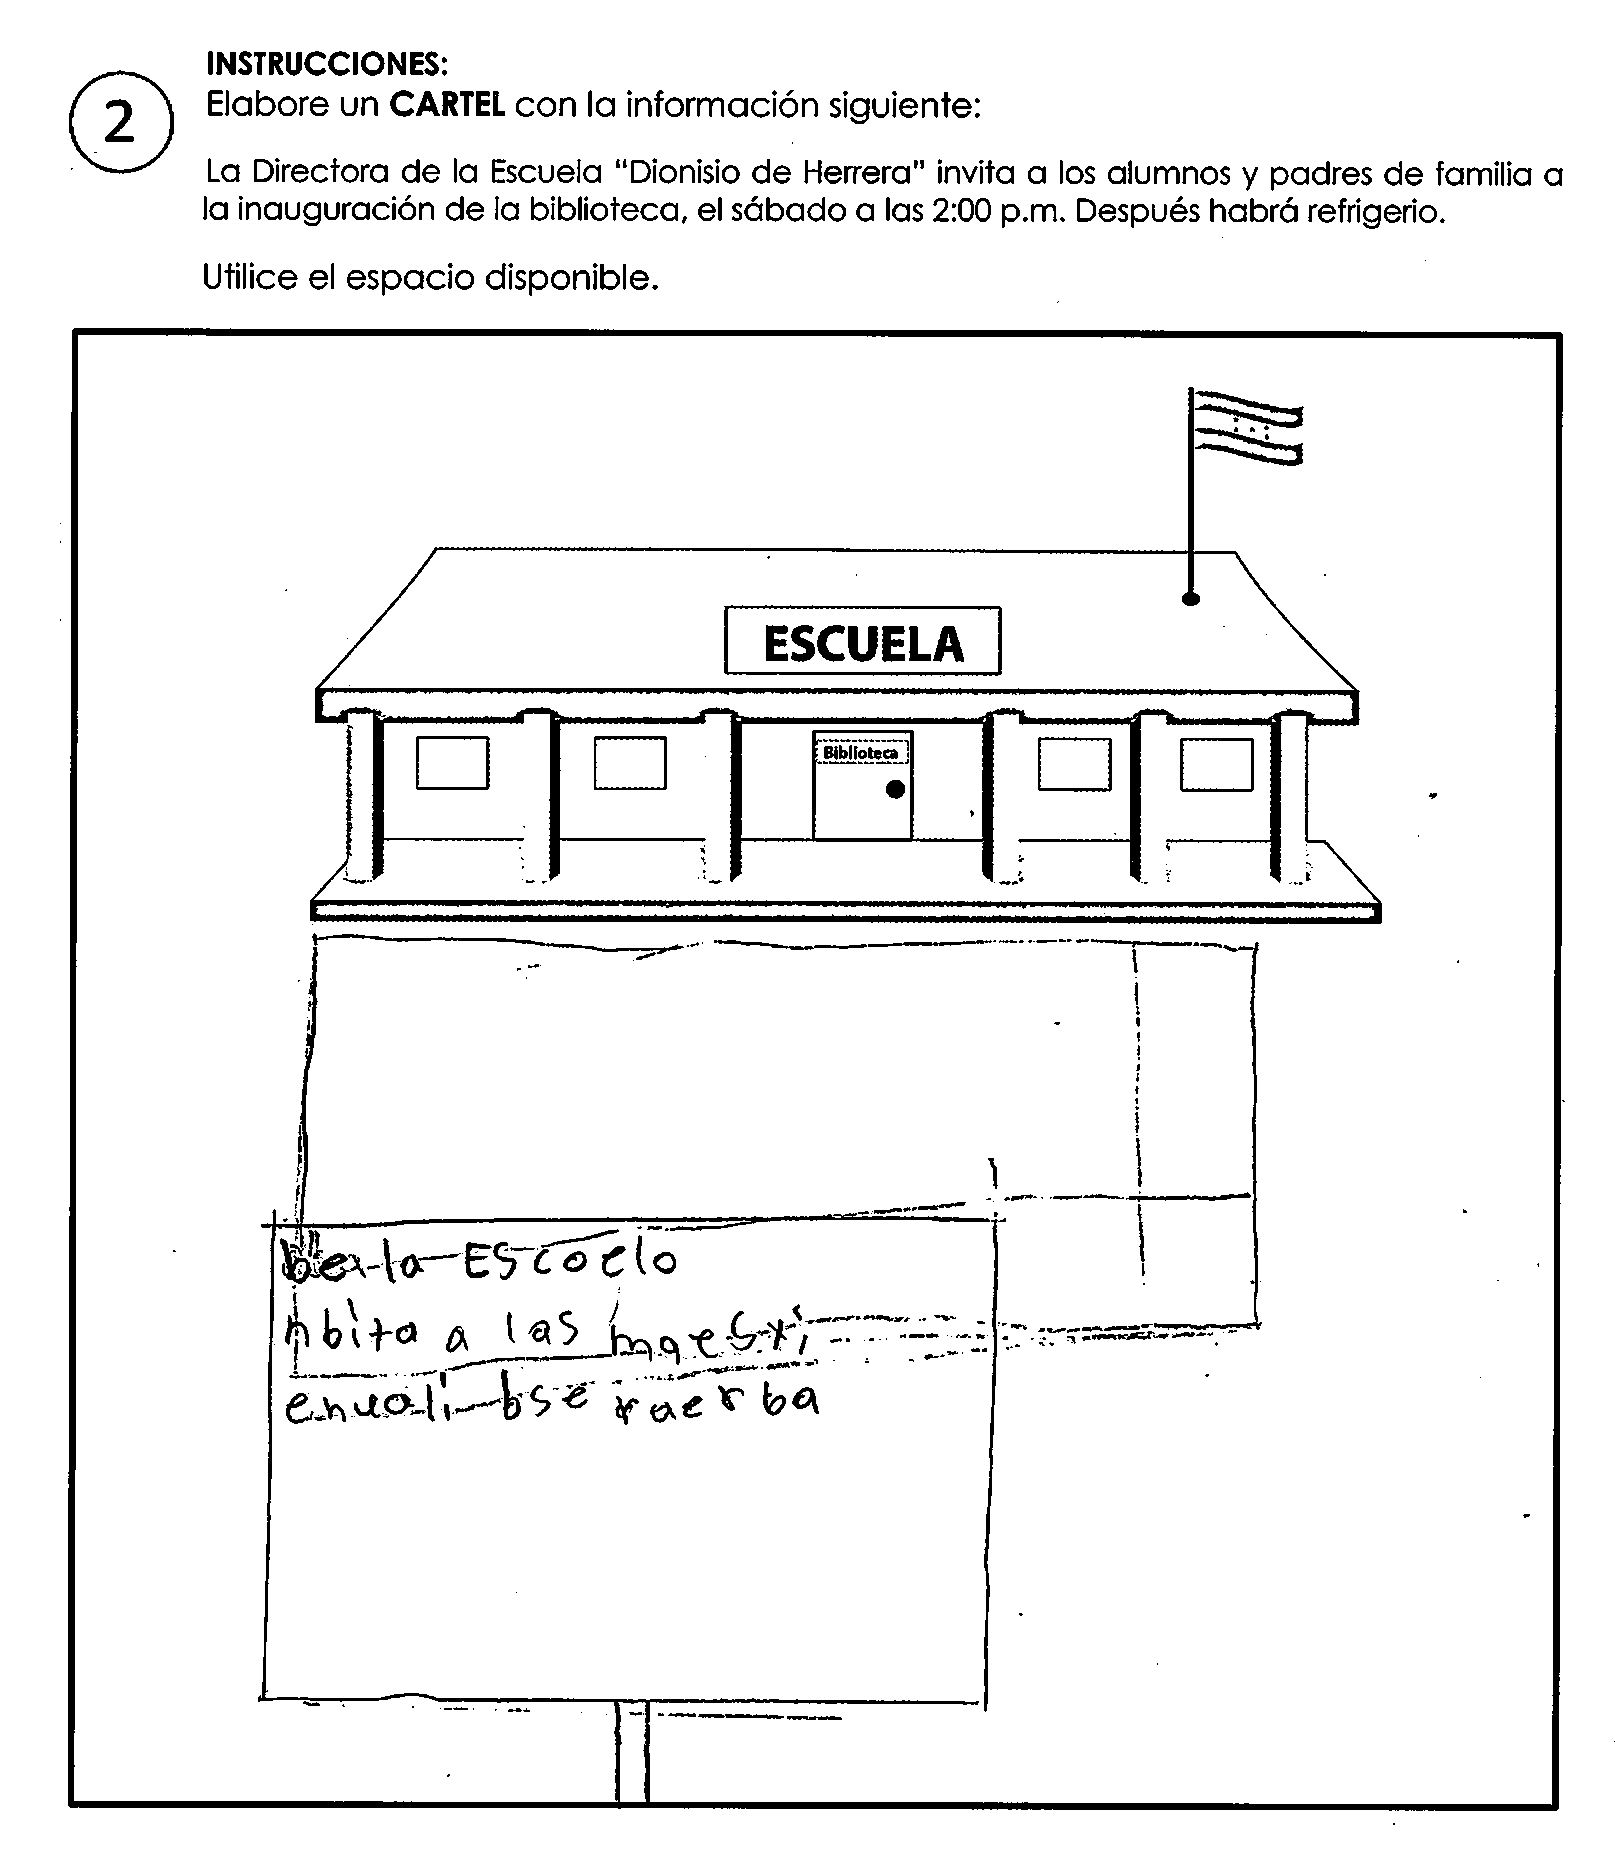 INSTRUCCIONES:
2
Elabore un CARTEL con la información siguiente:
La Directora de la Escuela "Dionisio de Herrera" invita a los alumnos y padres de familia a
la inauguración de la biblioteca, el sábado a las 2:00 p.m. Después habrá refrigerio.
Utilice el espacio disponible.
ESCUELA
Biblioteca
la EScoelo
nbita a las maesxi
enuali bse raerba